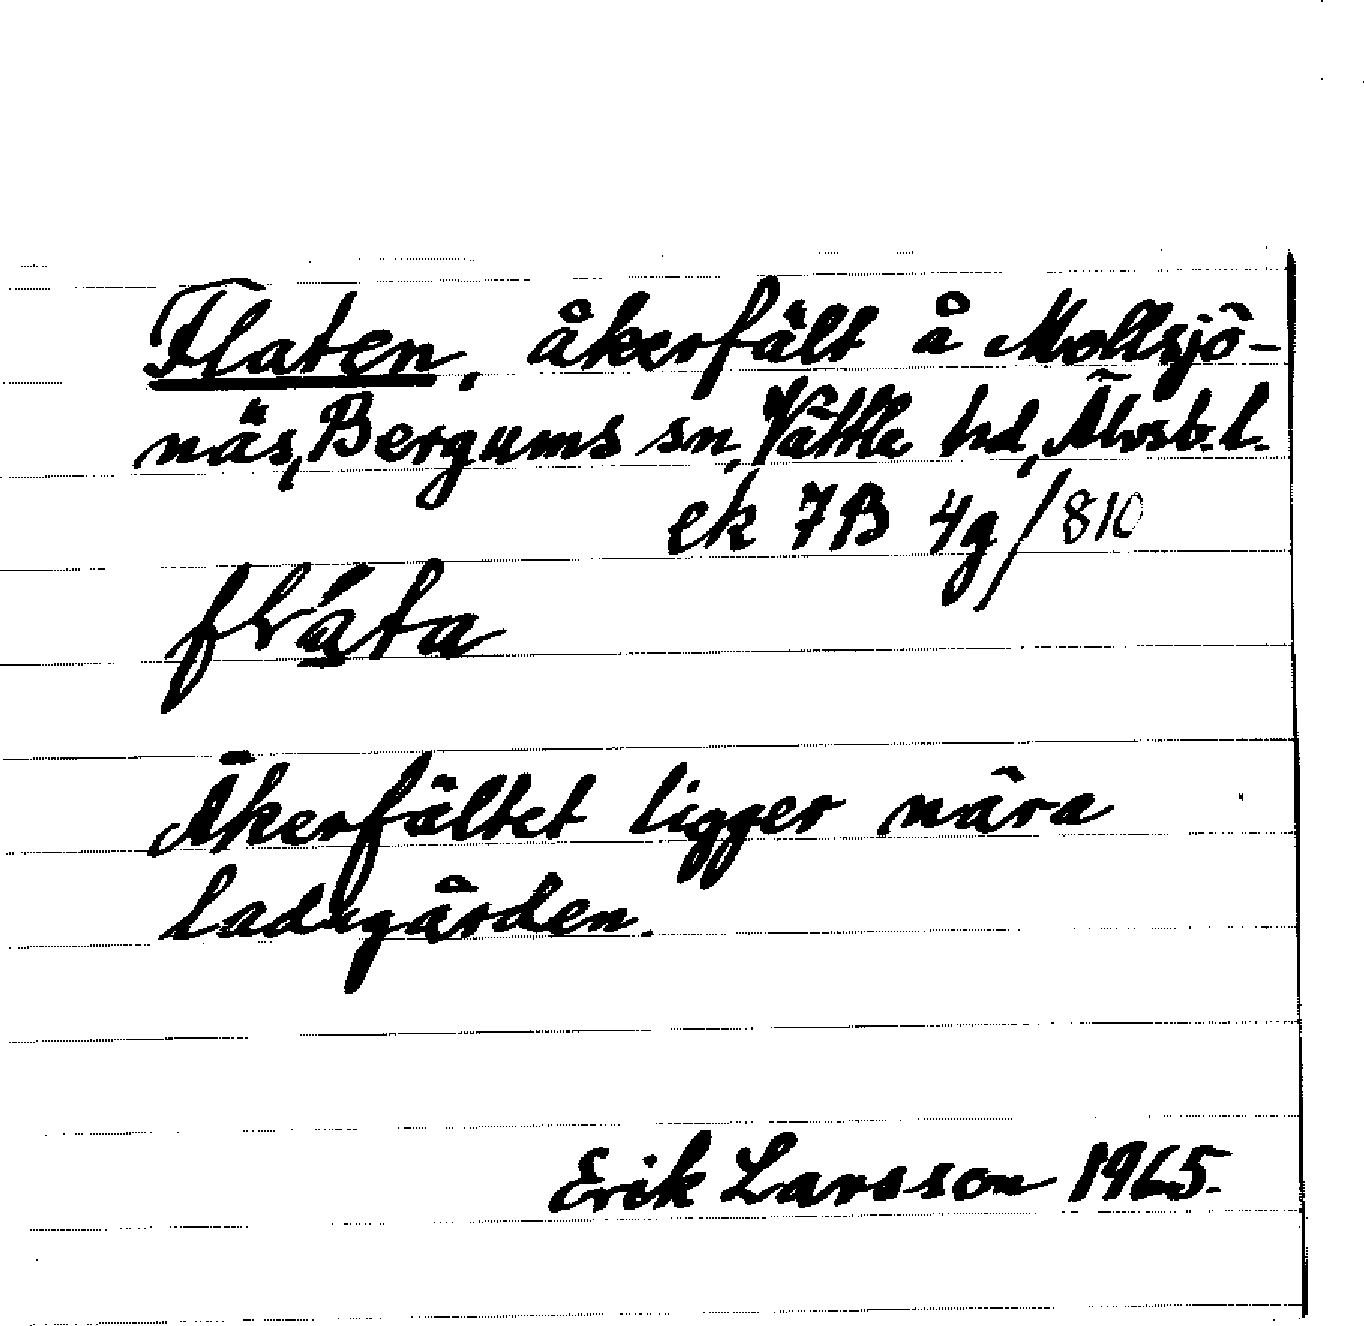 Flaten, åkerfält å Mollsjö-
näs, Bergums sn, Vättle hd, Älvsb.l.
ek 7B 4g/810
flá̱ta
Åkerfältet ligger nära
ladugården.
Erik Larsson 1965.